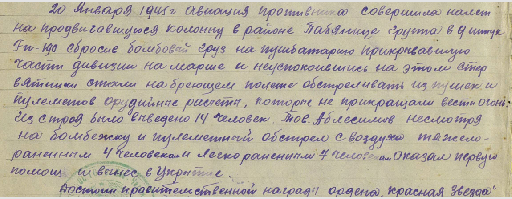 20 Января 1945г авиация противника совершила налет
на продвигавшуюся колонну в районе Пабянице группа в 9 штук
Fw-190 сбросив бомбовой груз на нушу батарею прикрывавшую
части дивизии на марше и неуспокоившись на этом стер
вятники стали на бреющем полете обстреливать из пушек и
пулеметов орудийные расчеты, которые не прекращали вести огонь.
Из строя было выведено 14 человек. Тов. Аблесимов несмотря
на бомбежку и пулеметный обстрел с воздуха тяжело-
раненным 4 человекам и легкораненным 7 человекам оказал первую
помощь и вынес в укрытие.
Достоин правительственной награды ордена "Красная Звезда"